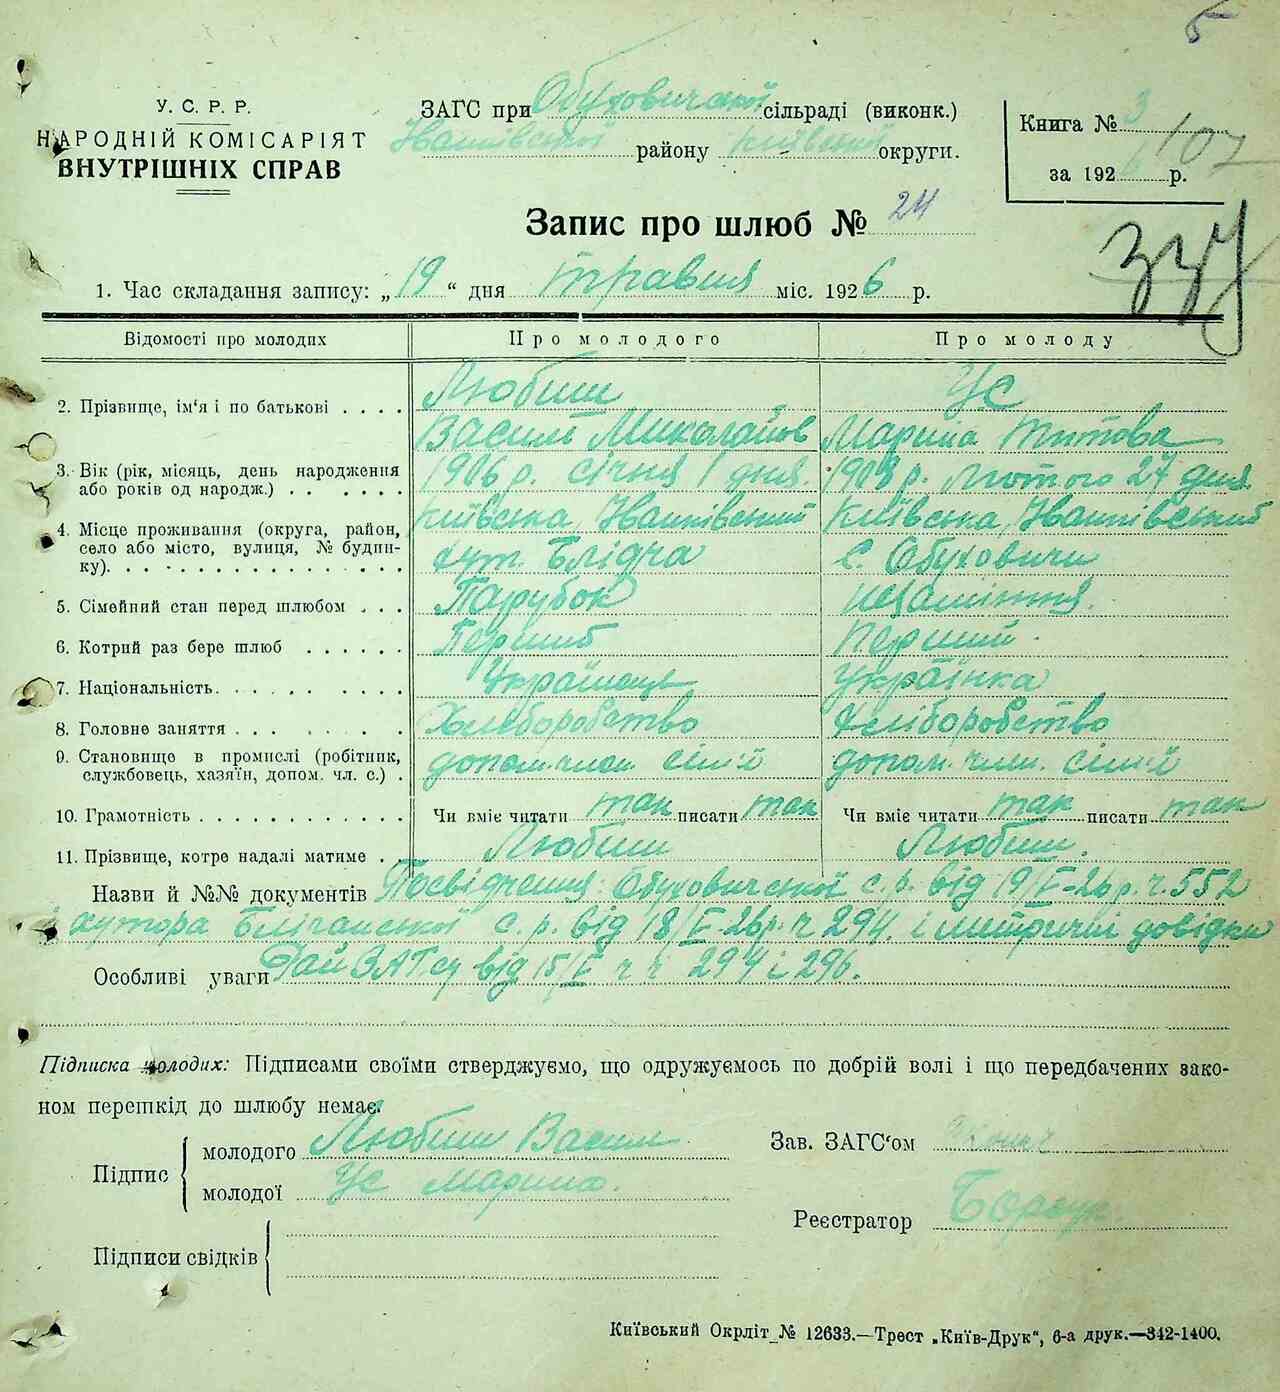 5
У. С. Р. Р.
НАРОДНІЙ КОМІСАРІЯТ
ВНУТРІШНІХ СПРАВ
ЗАГС при Обуховичської сільраді (виконк.)
Іванківської району Київської округи.
Книга № 3
107
за 1926 р.
Запис про шлюб № 24
334
1. Час складання запису: „19“ дня травня міс. 1926 р.
Відомості про молодих Про молодого Про молоду
2. Прізвище, ім'я і по батькові . . . . Любиш Ус
Василь Миколайов Марина Титова
3. Вік (рік, місяць, день народження або років од народж.) . . . . . . 1906 р. січня 1 дня. 1908 р. Лютого 27 дня
4. Місце проживання (округа, район, село або місто, вулиця, № будинку). . . . Київська, Іванківський Київська, Іванківський
хут. Блідча с. Обуховичи
5. Сімейний стан перед шлюбом . . . Парубок незаміжня.
6. Котрий раз бере шлюб . . . . . . Перший Перший.
7. Національність. . . . . . . . . Українець Українка
8. Головне заняття . . . . . . . . Хліборобство Хліборобство
9. Становище в промислі (робітник, службовець, хазяїн, допом. чл. с.) . допом. член. сімії допом. член. сімії
10. Грамотність . . . . . . . . . . . . Чи вміє читати так писати так Чи вміє читати так писати так
11. Прізвище, котре надалі матиме . . Любиш Любиш.
Назви й №№ документів Посвідчення Обуховичської с.р. від 19/V-26 р. ч. 552
і хутора с. р. від 18/V-26 р. ч 294. і метричні довідки
Особливі уваги Рай ЗАГСу від 15/V ч ч 294 і 296.
Підписка молодих: Підписами своїми стверджуємо, що одружуємось по добрій волі і що передбачених зако-
ном перешкід до шлюбу немає.
Підпис { молодого Любиш Васил
молодої Ус Марина.
Зав. ЗАГС'ом
Реєстратор Борсук
Підписи свідків {
Київський Окрліт № 12633.—Трест „Київ-Друк“, 6-а друк.—342-1400.